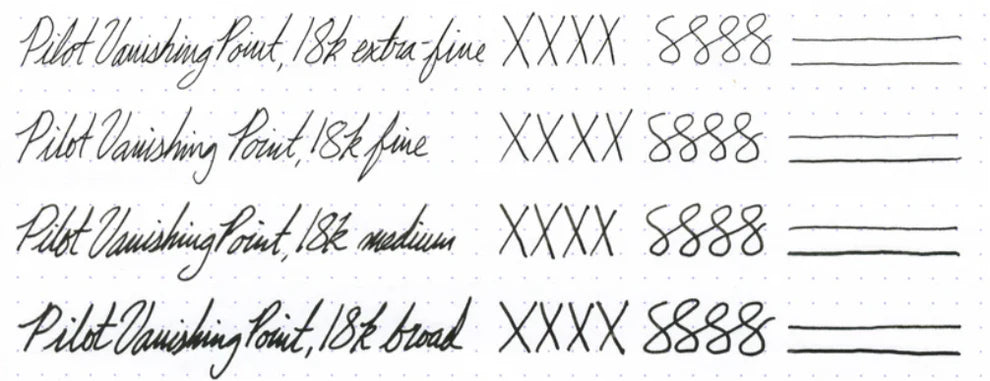 Pilot Vanishing Point, 18k extra-fine XXXX 8888
Pilot Vanishing Point, 18k fine XXXX 8888
Pilot Vanishing Point, 18k medium XXXX 8888
Pilot Vanishing Point, 18k broad XXXX 8888